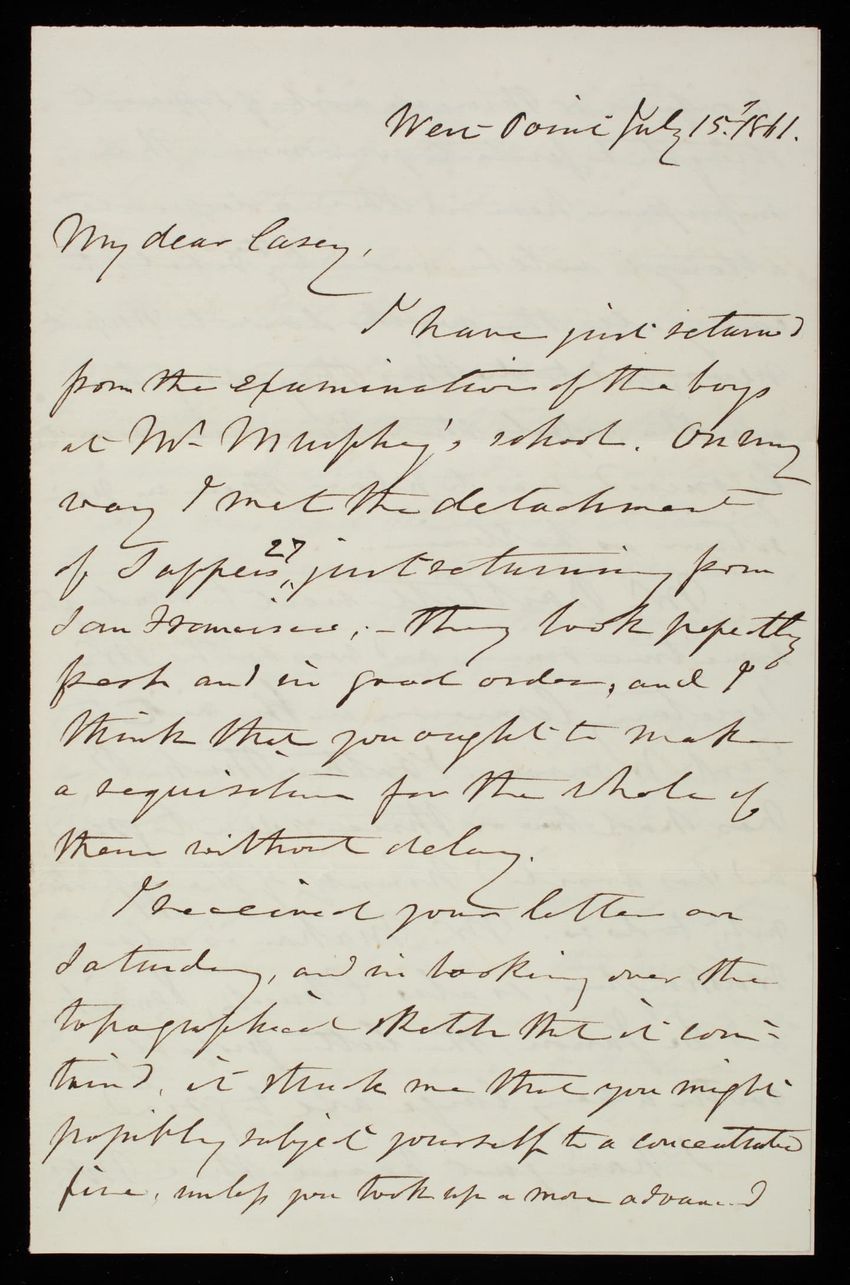 West Point July 15th, 1861.
My dear Casey,
I have just returned
from the examination of the boys
at Mr Murphey's school. On my
way I met the detachment
of Sappers 27, just returning from
San Francisco; - they look perfectly
fresh and in good order, and I
think that you ought to make
a requisition for the whole of
them without delay.
I received your letter on
Saturday, and in looking over the
topographical sketch that it con-
tained, it struck me that you might
possibly subject yourself to a concentrated
fire, unless you took up a more advanced